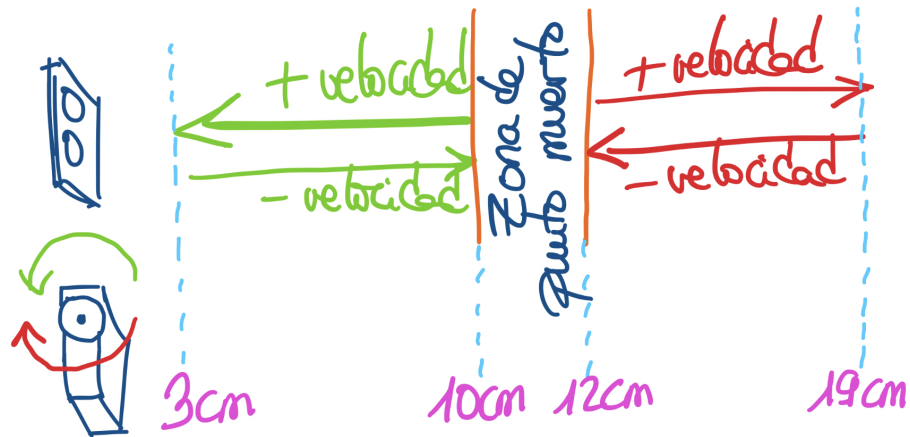 + velocidad
- velocidad
Zona de
punto muerto
+ velocidad
- velocidad
3cm
10cm
12cm
19cm